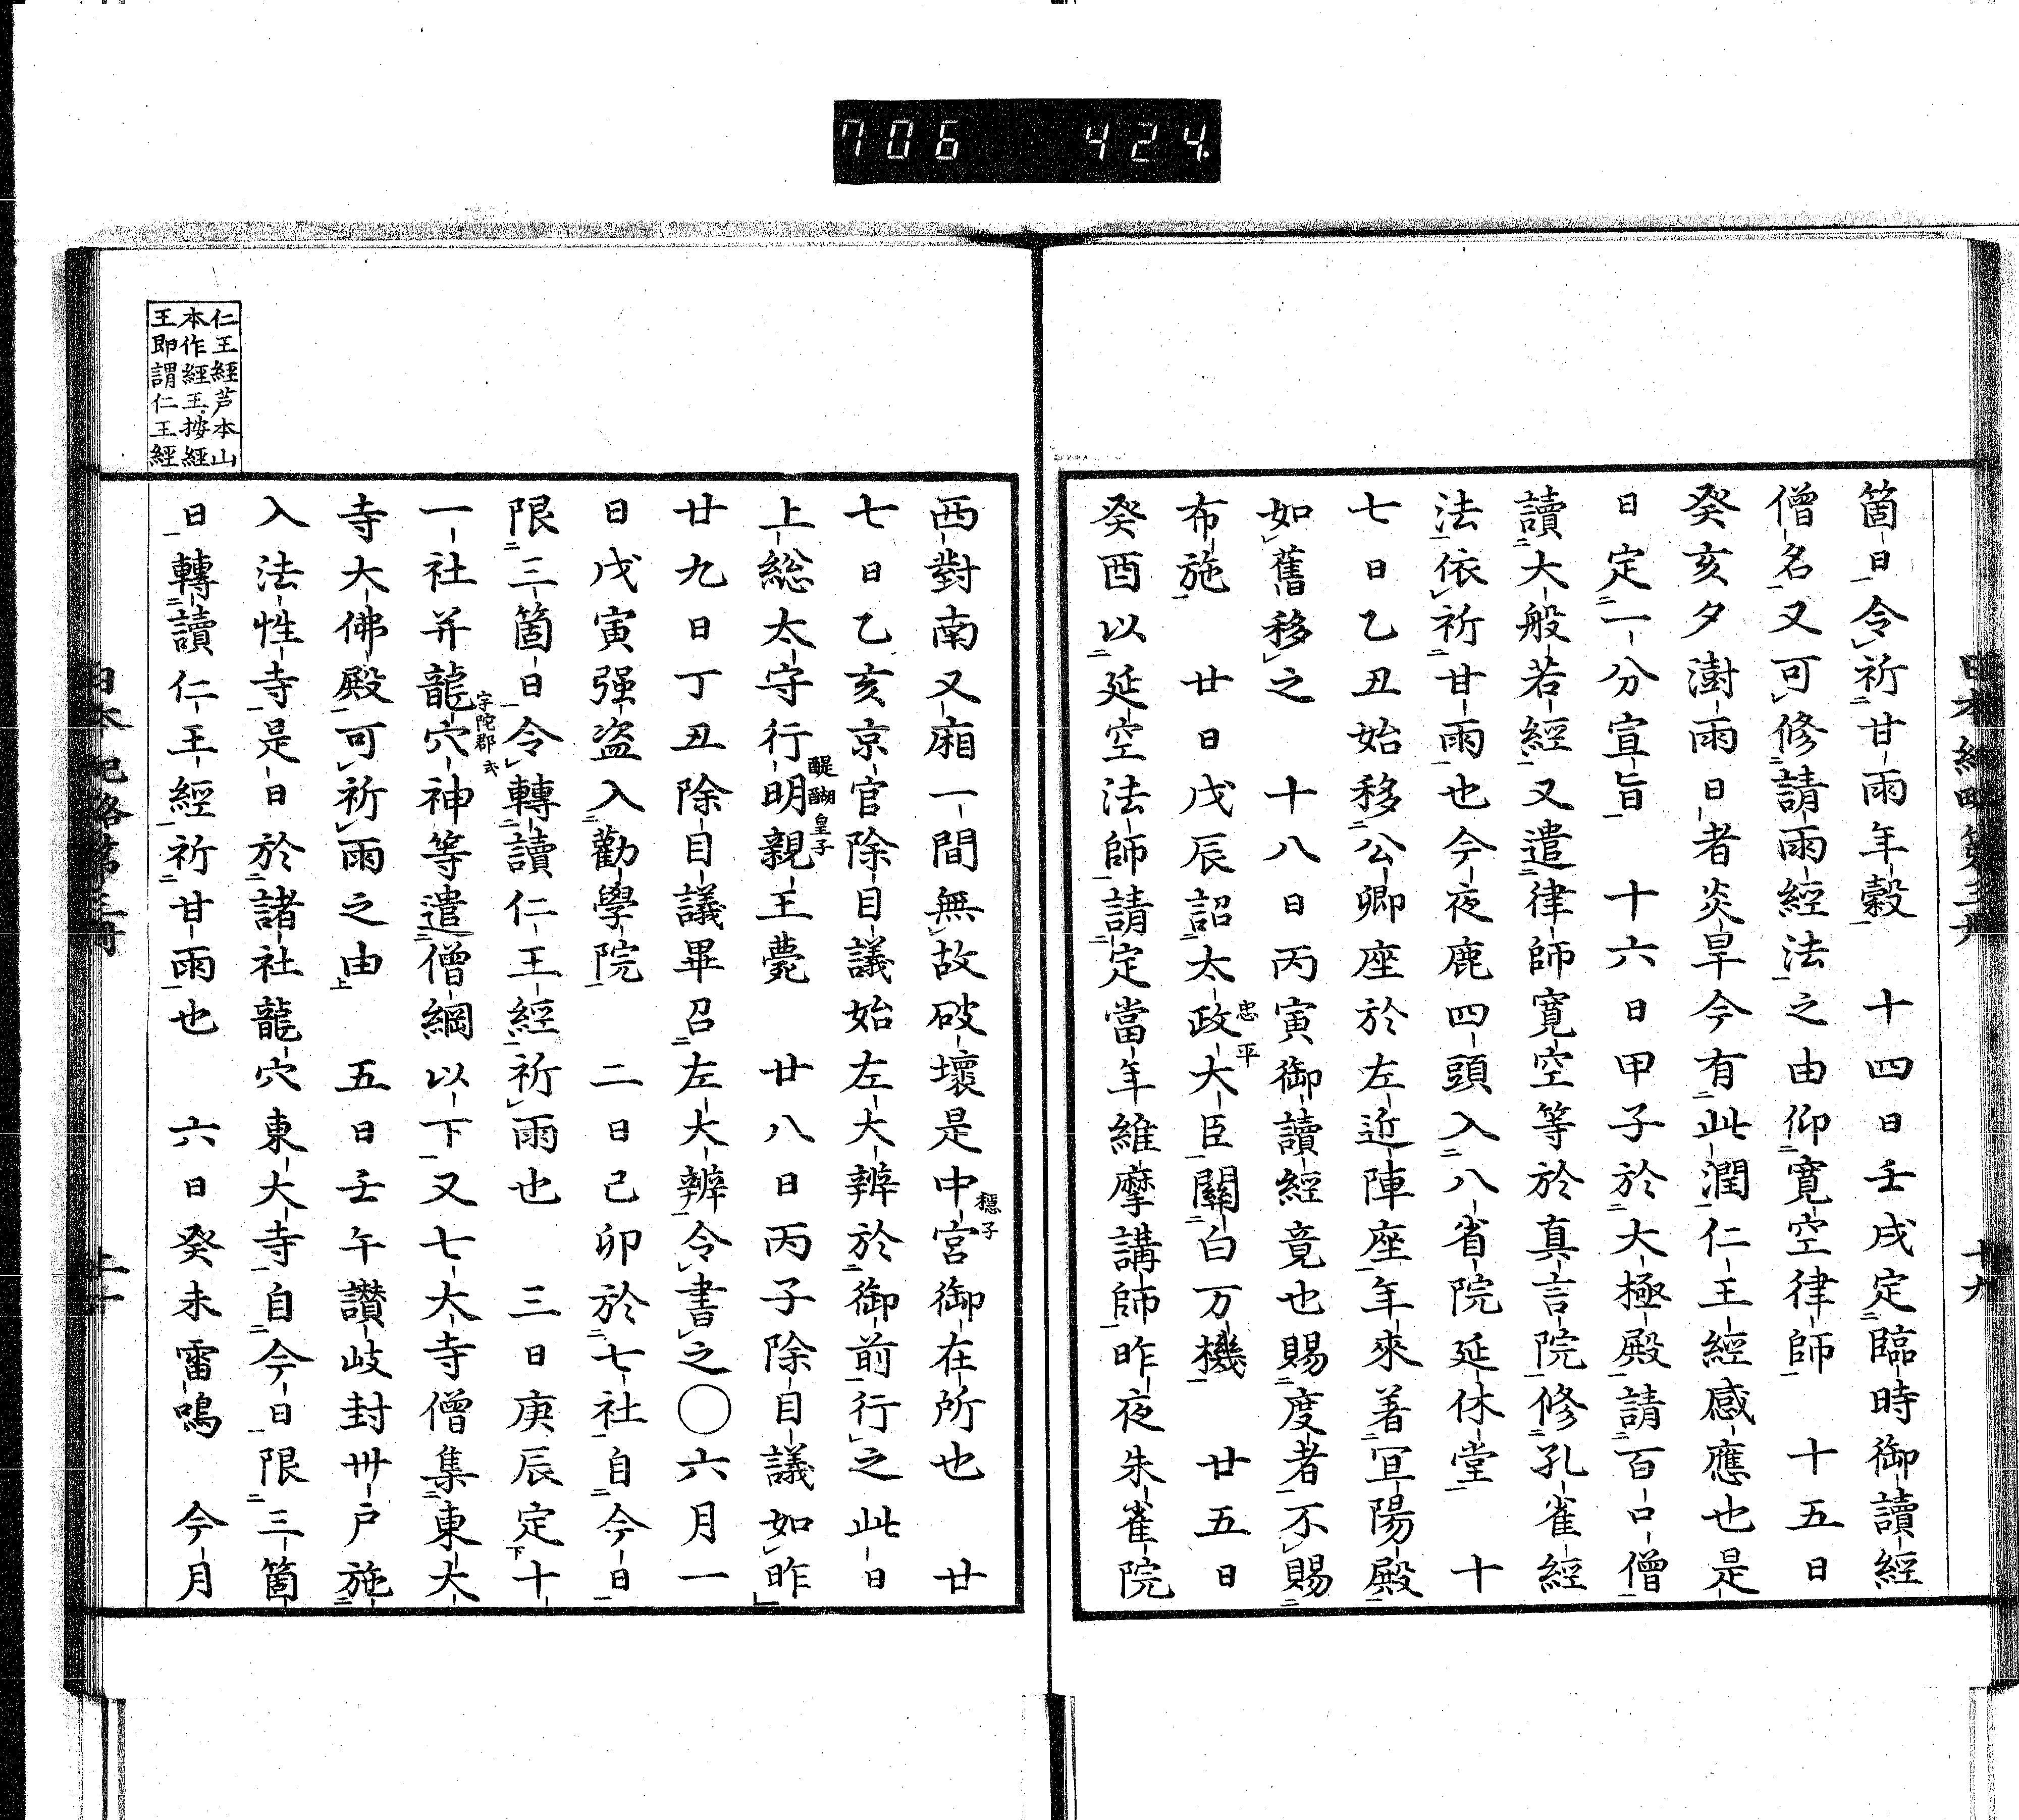 706 424
箇日令祈甘雨年穀　十四日壬戌定臨時御讀經
僧名又可修請雨經法之由仰寛空律師　十五日
癸亥夕澍雨日者炎旱今有此潤仁王經感應也是
日定一分宣旨　十六日甲子於大極殿請百口僧
讀大般若經又遣律師寛空等於真言院修孔雀經
法依祈甘雨也今夜鹿四頭入八省院延休堂　十
七日乙丑始移公卿座於左近陣座年來著冝陽殿
如舊移之　十八日丙寅御讀經竟也賜度者不賜
布施　廿日戊辰詔太政大臣關白万機　廿五日
忠平
癸酉以延空法師請定當年維摩講師昨夜朱雀院
西對南又廂一間無故破壞是中宮御在所也　廿
穩子
七日乙亥京官除目議始左大辨於御前行之此日
上総太守行明親王薨　廿八日丙子除目議如昨
醍醐皇子
廿九日丁丑除目議畢召左大辨令書之〇六月一
日戊寅强盗入勸學院　二日己卯於七社自今日
限三箇日令轉讀仁王經祈雨也　三日庚辰定十
一社并龍穴神等遣僧綱以下又七大寺僧集東大
宇陀郡
寺大佛殿可祈雨之由　五日壬午讃岐封卅戸施
入法性寺是日於諸社龍穴東大寺自今日限三箇
日轉讀仁王經祈甘雨也　六日癸未雷鳴　今月
仁王經芦本山
本作經王按經
王即謂仁王經